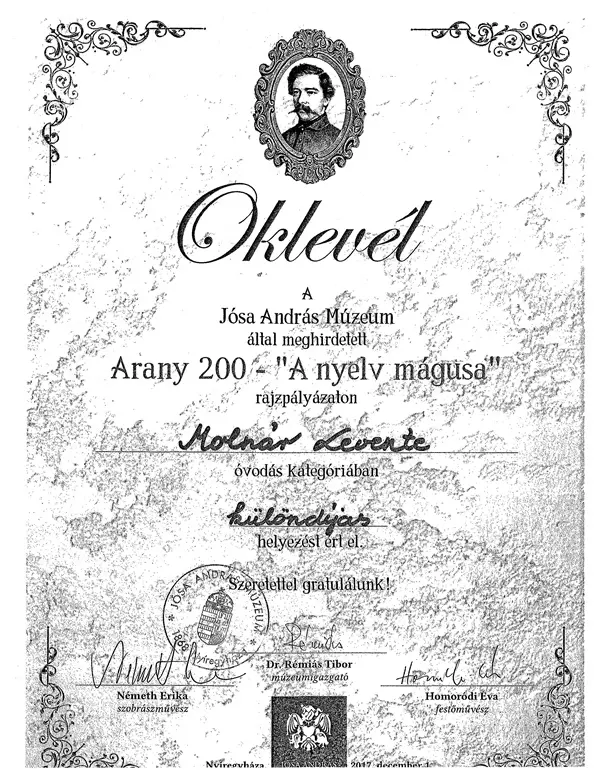 Oklevél
A
Jósa András Múzeum
által meghirdetett
Arany 200 - "A nyelv mágusa"
rajzpályázaton
Molnár Levente
óvodás kategóriában
különdíjas
helyezést ért el.
Szeretettel gratulálunk!
JÓSA ANDRÁS MÚZEUM
1868 Nyíregyháza
Dr. Rémiás Tibor
múzeumigazgató
Németh Erika
szobrászművész
Homoródi Éva
festőművész
Nyíregyháza, 2017. december 1.
JÓSA ANDRÁS